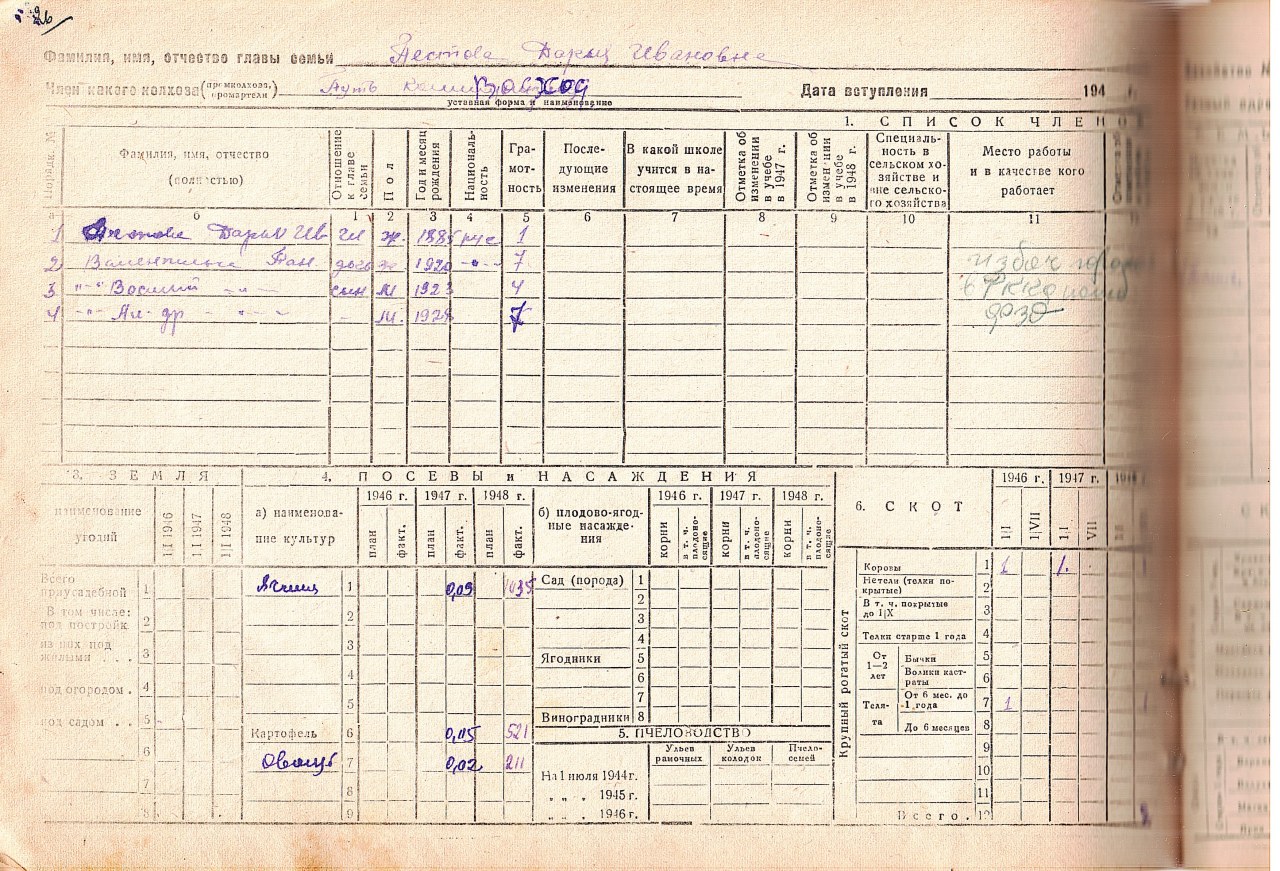 26
Фамилия, имя, отчество главы семьи Пестова Дарья Ивановна
Член какого колхоза (промколхоза, промартели) Путь
уставная форма и наименование
Дата вступления 194
1. СПИСОК ЧЛЕНО
Порядк. №
Фамилия, имя, отчество (полностью)
Отношение к главе семьи
Пол
Год и месяц рождения
Националь-ность
Гра-мот-ность
После-дующие изменения
В какой школе учится в на-стоящее время
Отметка об изменении в учебе в 1947 г.
Отметка об изменении в учебе в 1948 г.
Специаль-ность в сельском хо-зяйстве и вне сельско-го хозяйства
Место работы и в качестве кого работает
а б 1 2 3 4 5 6 7 8 9 10 11
1 Пестова Дарья Ив гл ж. 1885 рус 1
2 Валентина Пан. дочь ж. 1920 -"- 7 избач
3 -"- Василий -"- сын м 1923 4
4 -"- Ал-др -"- - м. 1928 7
3. ЗЕМЛЯ
наименование угодий
1|I 1946
1|I 1947
1|I 1948
Всего приусадебной 1
В том числе: под постройк. 2
из них под жилыми . . . 3
под огородом . 4
под садом . . 5
6
7
8
4. ПОСЕВЫ и НАСАЖДЕНИЯ
а) наименова-ние культур
1946 г. 1947 г. 1948 г.
план факт. план факт. план факт.
Ячмень 1 0,09 1035
2
3
4
5
Картофель 6 0,15 521
Овощи 7 0,02 211
8
9
б) плодово-ягод-ные насажде-ния
1946 г. 1947 г. 1948 г.
корни в т. ч. плодоно-сящие корни в т. ч. плодоно-сящие корни в т. ч. плодоно-сящие
Сад (порода) 1
2
3
4
Ягодники 5
6
7
Виноградники 8
5. ПЧЕЛОВОДСТВО
Ульев рамочных
Ульев колодок
Пчело-семей
На 1 июля 1944 г.
„ „ „ 1945 г.
„ „ „ 1946 г.
6. СКОТ
1946 г. 1947 г.
1|I 1|VII 1|I VII
Крупный рогатый скот
Коровы 1 1 1.
Нетели (телки по-крытые) 2
В т. ч. покрытые до 1|X 3
Телки старше 1 года 4
От 1—2 лет
Бычки 5
Волики каст-раты 6
Теля-та
От 6 мес. до 1 года 7 1
До 6 месяцев 8
9
10
11
Всего. 12